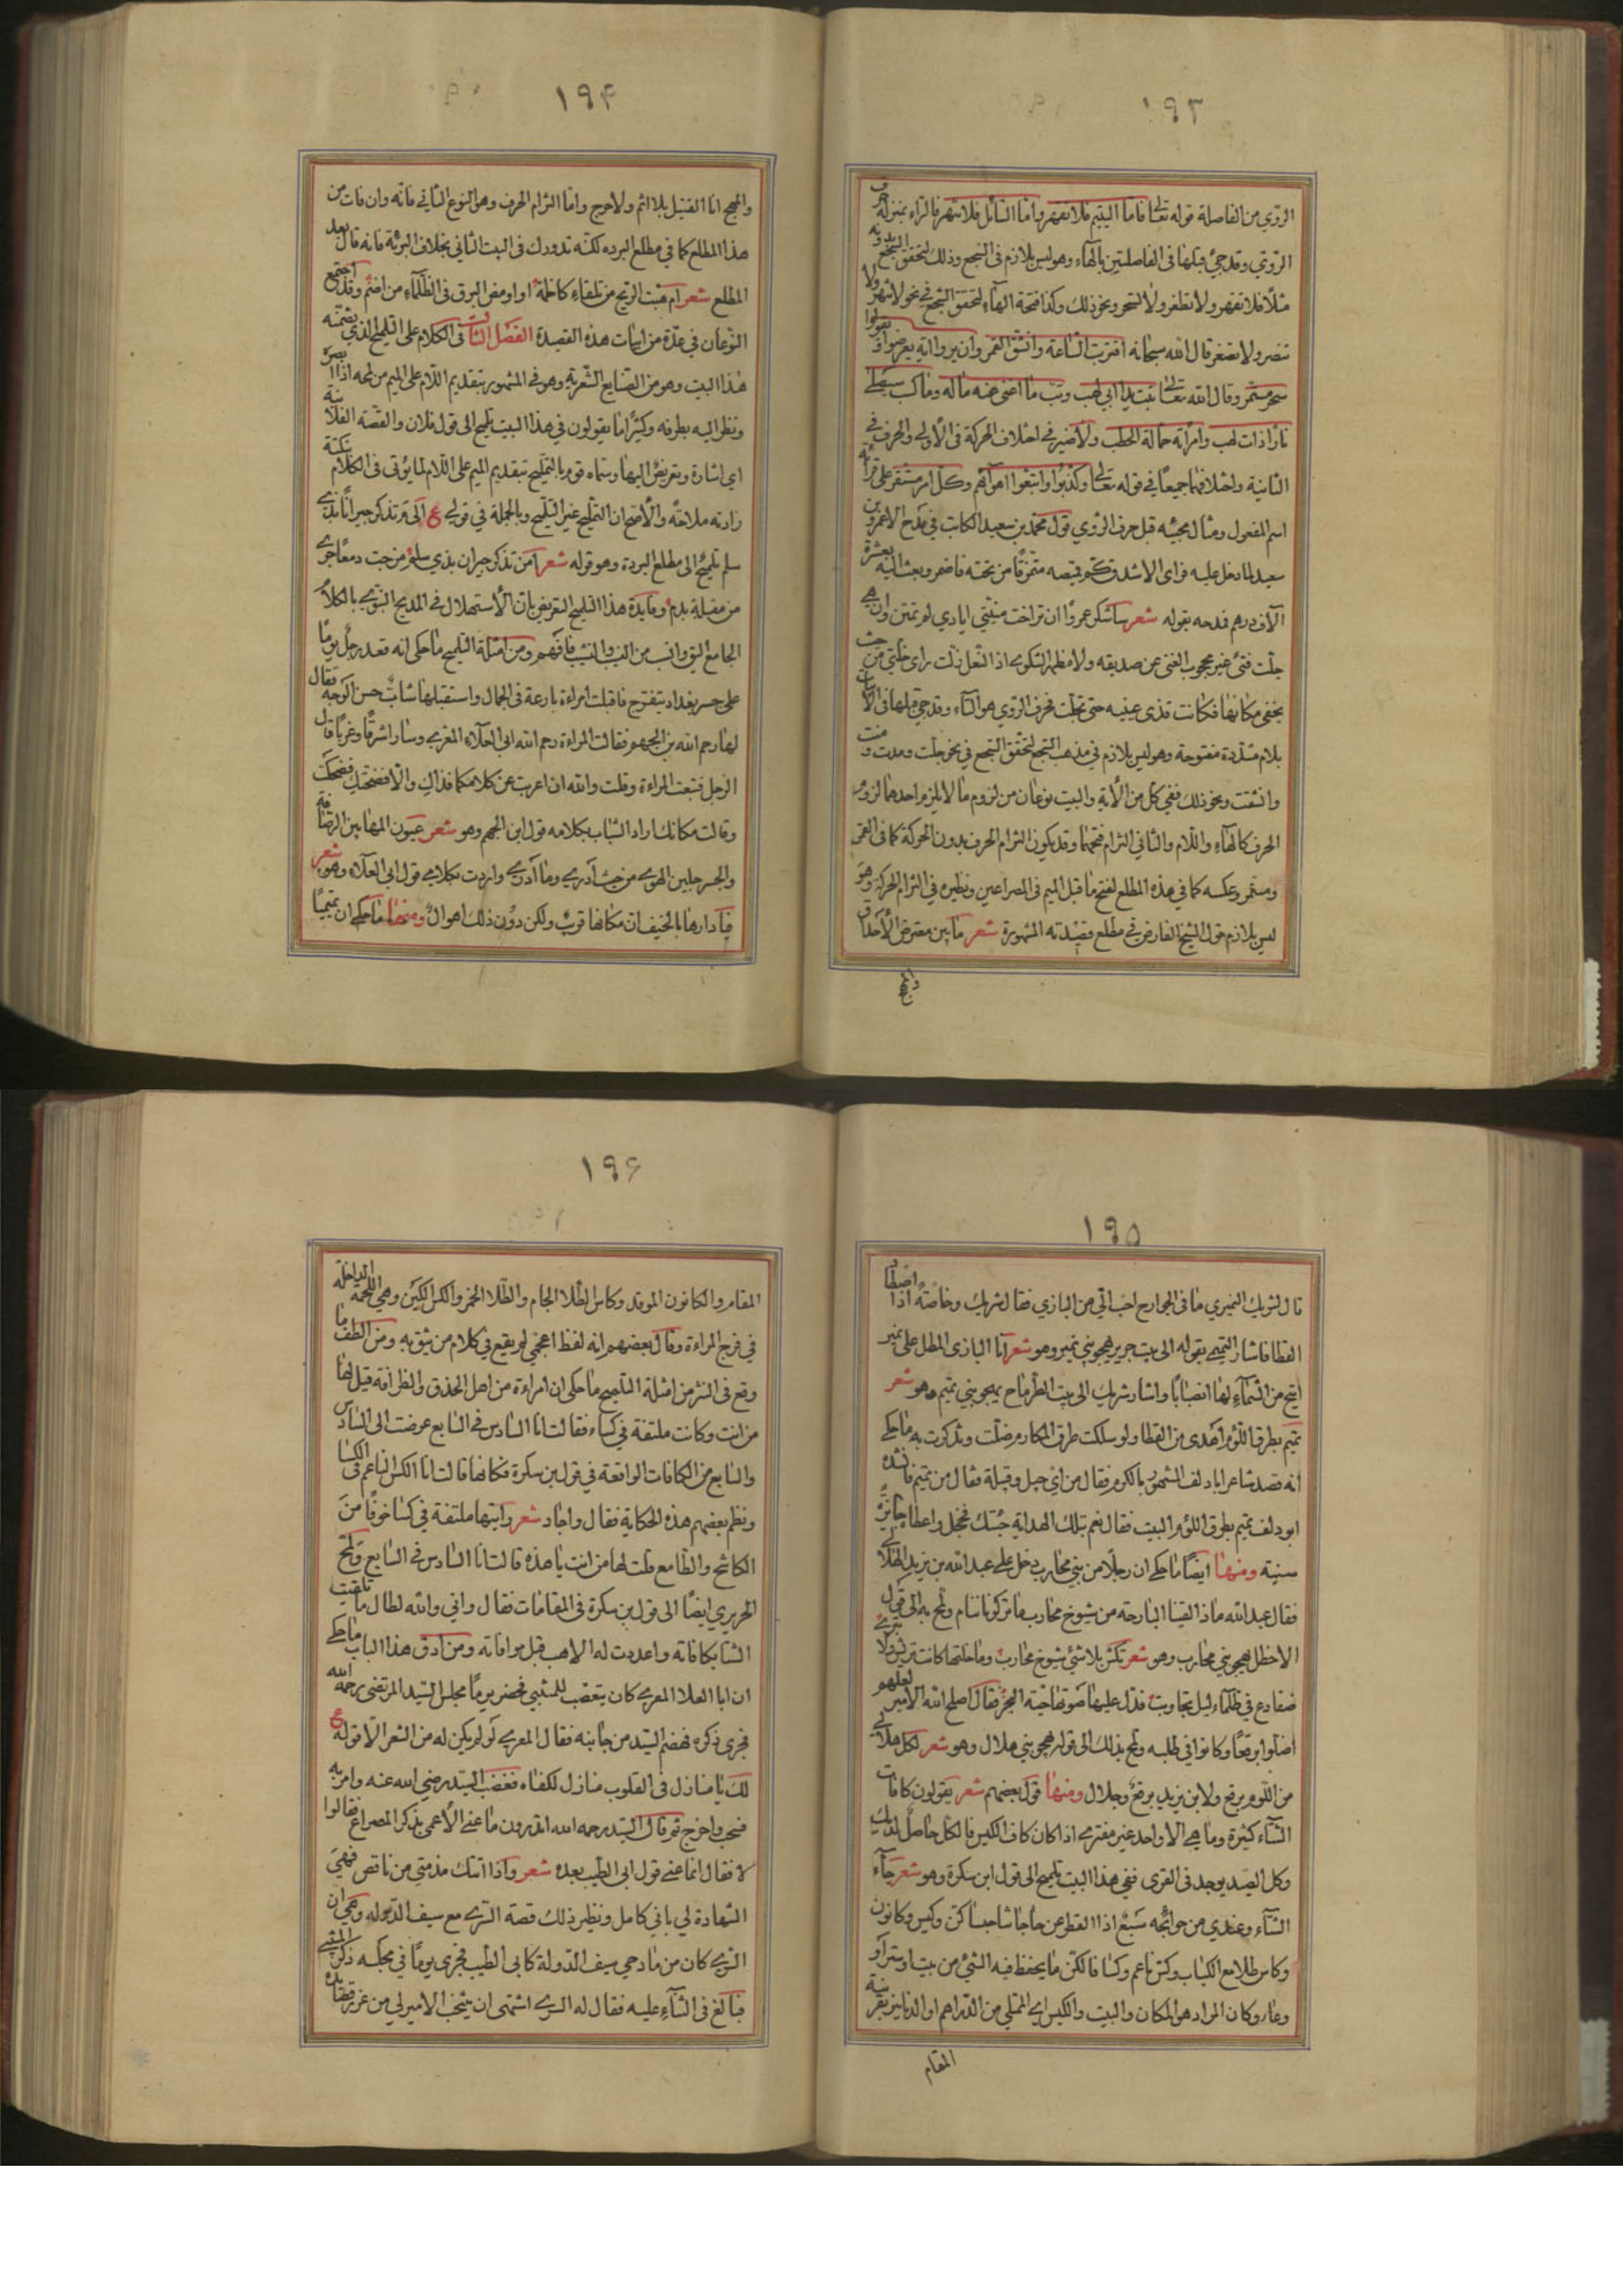 ١٩٣
الروي من الفاصلة قوله تعالى فاما اليتيم فلا تقهر واما السائل فلا تنهر فالراء بمنزلة حرف
الروي وقد جئ قبلها في الفاصلتين بالهاء وهو ليس بلازم في السجع وذلك لتحقق السجع بدونه
مثلا فلا تقهر ولا تظفر ولا تسخر ونحو ذلك وكذا فتحة الهاء لتحقق السجع في نحو لا تنهر ولا
تنصر ولا تصغر قال الله سبحانه اقتربت الساعة وانشق القمر وان يروا اية يعرضوا ويقولوا
سحر مستمر وقال الله تعالى تبت يدا ابي لهب وتب ما اغنى عنه ماله وما كسب سيصلى
نارا ذات لهب وامرأته حمالة الحطب ولا ضير في اختلاف الحركة في الأولى والحرف في
الثانية واختلافهما جميعا في قوله تعالى وكذبوا واتبعوا اهوآءهم وكل امر مستقر على قرأئه
اسم المفعول ومثال مجيئه قبل حرف الروي قول محمد بن سعيد الكاتب في مدح الاعمرو بن
سعيد لما دخل عليه فرأى الاشدق كم قميصه متمزقا من تحته فاضمر وبعث اليه بعشرة
آلاف درهم فمدحه بقوله شعر ساشكر عمروا ان تراخت منيتي ايادي لم تمنن وان هي
جلت فتى غير محجوب الغنى عن صديقه ولا مظهر الشكوى اذا النعل زلت راى خلتي من حيث
يخفى مكانها فكانت قذى عينيه حتى تجلت فحرف الروي هو التاء وقد جئ قبلها في الأبيات
بلام مشددة مفتوحة وهو ليس بلازم في مذهب السجع لتحقق السجع في نحو جلت ومدت ومنت
وانشقت ونحو ذلك ففي كل من الأية والبيت نوعان من لزوم ما لا يلزم احدهما لزوم
الحرف كالهاء واللام والثاني التزام فتحهما وقد يكون التزام الحرف بدون الحركة كما في القمر
ومستمر وعكسه كما في هذه المطلع لفتح ما قبل الميم في المصراعين ونظيره في التزام الحركة وهو
ليس بلازم قول الشيخ الفارض في مطلع قصيدته المشهورة شعر ما بين معترض الأحداق
والمهج
١٩۴
والمهج انا القتيل بلا اثم ولا حرج واما التزام الحرف وهو النوع الثاني فانه وان فات من
هذا المطلع كما في مطلع البرده لكنه تدورك في البيت الثاني بخلاف البرئة فانه قال بعد
المطلع شعر ام هبت الريح من تلقاء كاظمة او اومض البرق في الظلماء من اضم وقد اجتمع
النوعان في عدة من ابيات هذه القصيدة الفصل الثالث في الكلام على التلميح الذي يضمنه
هذا البيت وهو من الصنايع الشعرية وهو في المشهور بتقديم اللام على الميم من لمحه اذا ابصره
ونظر اليه بطرفه وكثيرا ما يقولون في هذا البيت تلميح الى قول فلان والقصة الفلانية
اي اشارة وتعريض اليها وسماه قوم بالتمليح بتقديم الميم على اللام لما يؤتى في الكلام بنكتة
زادته ملاحة والأصح ان التمليح غير التلميح وبالجملة في قولي ع الى م تذكر جيرانا بذي
سلم تلميح الى مطلع البردة وهو قوله شعر امن تذكر جيران بذي سلم مزجت دمعا جرى
من مقلة بدم وفايدة هذا التلميح التعريض بان الأستهلال في المديح النبوي بالكلام
الجامع اليق وانسب من النسب والتشبيب فافهم ومن امثلة التلميح ما حكي انه قعد رجل يوما
على جسر بغداد يتفرج فاقبلت امراءة بارعة في الجمال واستقبلها شاب حسن الوجه فقال
لها رحم الله بن الجهم فقالت المراءة رحم الله ابي العلاء المعري وسارا شرقا وغربا قال
الرجل فتبعت المراءة وقلت والله ان اعربت عن كلامكما فذاك والا فضحتك فضحكت
وقالت مكانك اراد الشاب بكلامه قول ابن الجهم وهو شعر عيون المها بين الرصافة
والجسر جلبن الهوى من حيث أدري وما أدري واردت بكلامي قول ابي العلاء وهو شعر
فيا دارها بالخيف ان مكانها قريب ولكن دون ذلك اهوال ومنها ما حكي ان تميميا
١٩٥
قال لشريك النميري ما في الجوارح احب الي من البازي فقال شريك وخاصة اذا اصطاد
القطا فاشار التميمي بقوله الى بيت جرير يهجو بني نمير وهو شعر انا البازي المطل على نمير
اتيح من السماء لها انصبابا واشار شريك الى بيت الطرماح يهجو بني تميم وهو شعر
تميم بطرق اللؤم اهدى من القطا ولو سلكت طرق المكارم ضلت وتذكرت به ما حكي
انه قصد شاعر ابا دلف المشهور بالكرم فقال من اي جبل وقبيلة فقال من تميم فانشده
ابو دلف تميم بطرق اللؤم البيت فقال نعم بتلك الهداية جئتك فخجل واعطاه جايزة
سنية ومنها ايضا ما حكي ان رجلا من بني محارب دخل على عبد الله بن يزيد الهلالي
فقال عبد الله ماذا لقينا البارحة من شيوخ محارب ما تركونا ننام ولمح به الى قول
الاخطل يهجو بني محارب وهو شعر تكش بلا شئ شيوخ محارب وما خلتها كانت تريش ولا تبري
ضفادع في ظلماء ليل تجاوبت فدل عليها صوتها حية البحر فقال اصلح الله الأمير لعلهم
اضلوا برقعا وكانوا في طلبه ولمح بذلك الى قوله يهجو بني هلال وهو شعر لكل هلالي
من اللوم برقع ولابن يزيد برقع وجلال ومنها قول بعضهم شعر يقولون كافات
الشتاء كثيرة وما هي الا واحد غير مفترى اذا كان كاف الكيس فالكل حاصل لديك
وكل الصيد يوجد في الفرى ففي هذا البيت تلميح الى قول ابن سكرة وهو شعر جاء
الشتاء وعندي من حوائجه سبع اذا القطر عن حاجاتنا حبسا كن وكيس وكانون
وكاس طلا مع الكباب وكس ناعم وكسا فالكن ما يحفظ فيه الشئ من بيت او ستر او
وعاء وكان المراد هو المكان والبيت والكيس اي الممتلي من الدراهم او الدنانير بقرينة
المقام
١٩۶
المقام والكانون الموقد وكاس الطلا الجام والطلا الخمر والكس الكين وهي اللحمة الداخلة
في فرج المراءة وقال بعضهم انه لفظ اعجمي لم يقع في كلام من يثق به ومن الطف ما
وقع في النثر من امثلة التلميح ما حكي ان امراءة من اهل الحذق والظرافة قيل لها
من انت وكانت ملتفة في كساء فقالت انا السادس في السابع عرضت الى السادس
والسابع من الكافات الواقعة في قول بن سكرة فكانها قالت انا الكس الناعم في الكسا
ونظم بعضهم هذه الحكاية فقال واجاد شعر رايتها ملتفة في كسا خوفا من
الكاشح والطامع قلت لها من انت يا هذه قالت انا السادس في السابع ولمح
الحريري ايضا الى قول بن سكرة في المقامات فقال واني والله لطال ما تلقيت
الشتا بكافاته واعددت له الاهب قبل موافاته ومن ادق هذا الباب ما حكي
ان ابا العلا المعري كان يتعصب للمتنبي فحضر يوما مجلس السيد المرتضى رحمه الله
فجرى ذكره فهضم السيد من جانبه فقال المعري لو لم يكن له من الشعر الا قوله ع
لك يا منازل في القلوب منازل لكفاه فغضب السيد رضي الله عنه وامر به
فسحب واخرج ثم قال السيد رحمه الله اتدرون ما عنى الأعمى بذكر المصراع فقالوا
لا فقال انما عنى قول ابي الطيب بعده شعر واذا اتتك مذمتي من ناقص فهي
الشهادة لي باني كامل ونظير ذلك قصة السري مع سيف الدوله وهي ان
السري كان من مادحي سيف الدولة كابي الطيب فجرى يوما في مجلسه ذكر المتنبي
فبالغ في الثناء عليه فقال له السري اشتهي ان ينتخب الامير لي من غرر قصائده